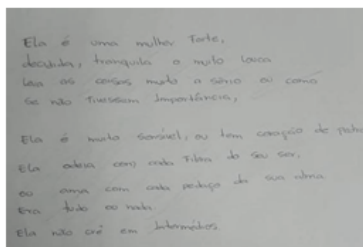 Ela é uma mulher forte,
decidida, tranquila e muito louca
Leva as coisas muito a sério ou como
se não tivessem importância,
Ela é muito sensível, ou tem coração de pedra
Ela odeia com cada fibra do seu ser,
ou ama com cada pedaço da sua alma.
Era tudo ou nada
Ela não crê em Intermédios.